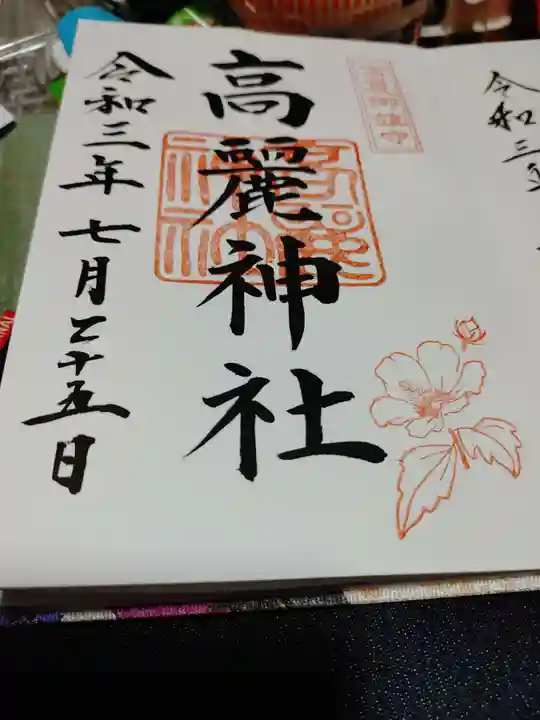 高麗神社
令和三年七月二十五日
令和三年